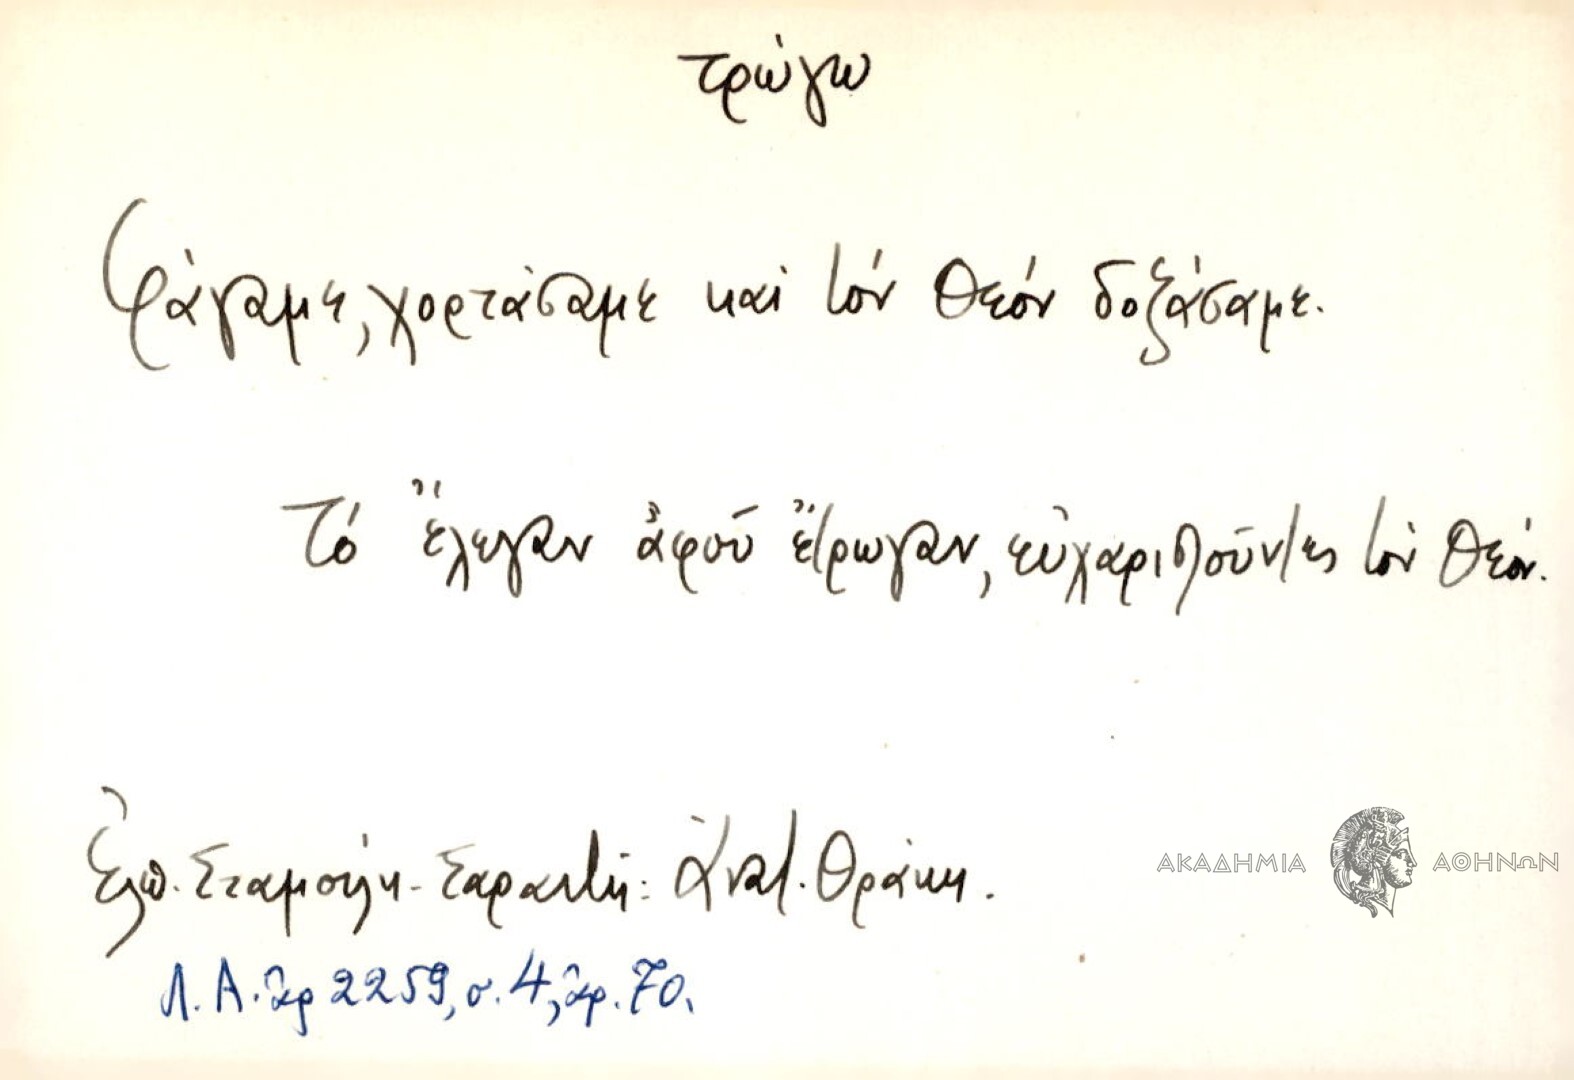 τρώγω
Φάγαμε, χορτάσαμε καί τόν Θεόν δοξάσαμε.
Τό ἔλεγαν ἀφοῦ ἔτρωγαν, εὐχαριστοῦντες τόν Θεόν.
Ἐλπ. Σταμούλη - Σαραντῆ: Ἀνατ. Θράκη.
ΑΚΑΔΗΜΙΑ ΑΘΗΝΩΝ
Λ. Α. ἀρ 2259, σ. 4, ἀρ. 70.